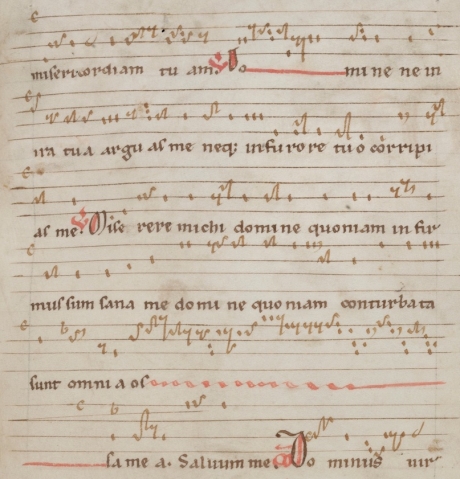 misericordiam tu am. Do mine ne in
ira tua argu as me neq; in furore tu o corripi
as me. Mise rere michi domine quoniam in fir
mus sum sana me domi ne quoniam conturbata
sunt omni a os
sa me a. Saluum me. Do minus uir